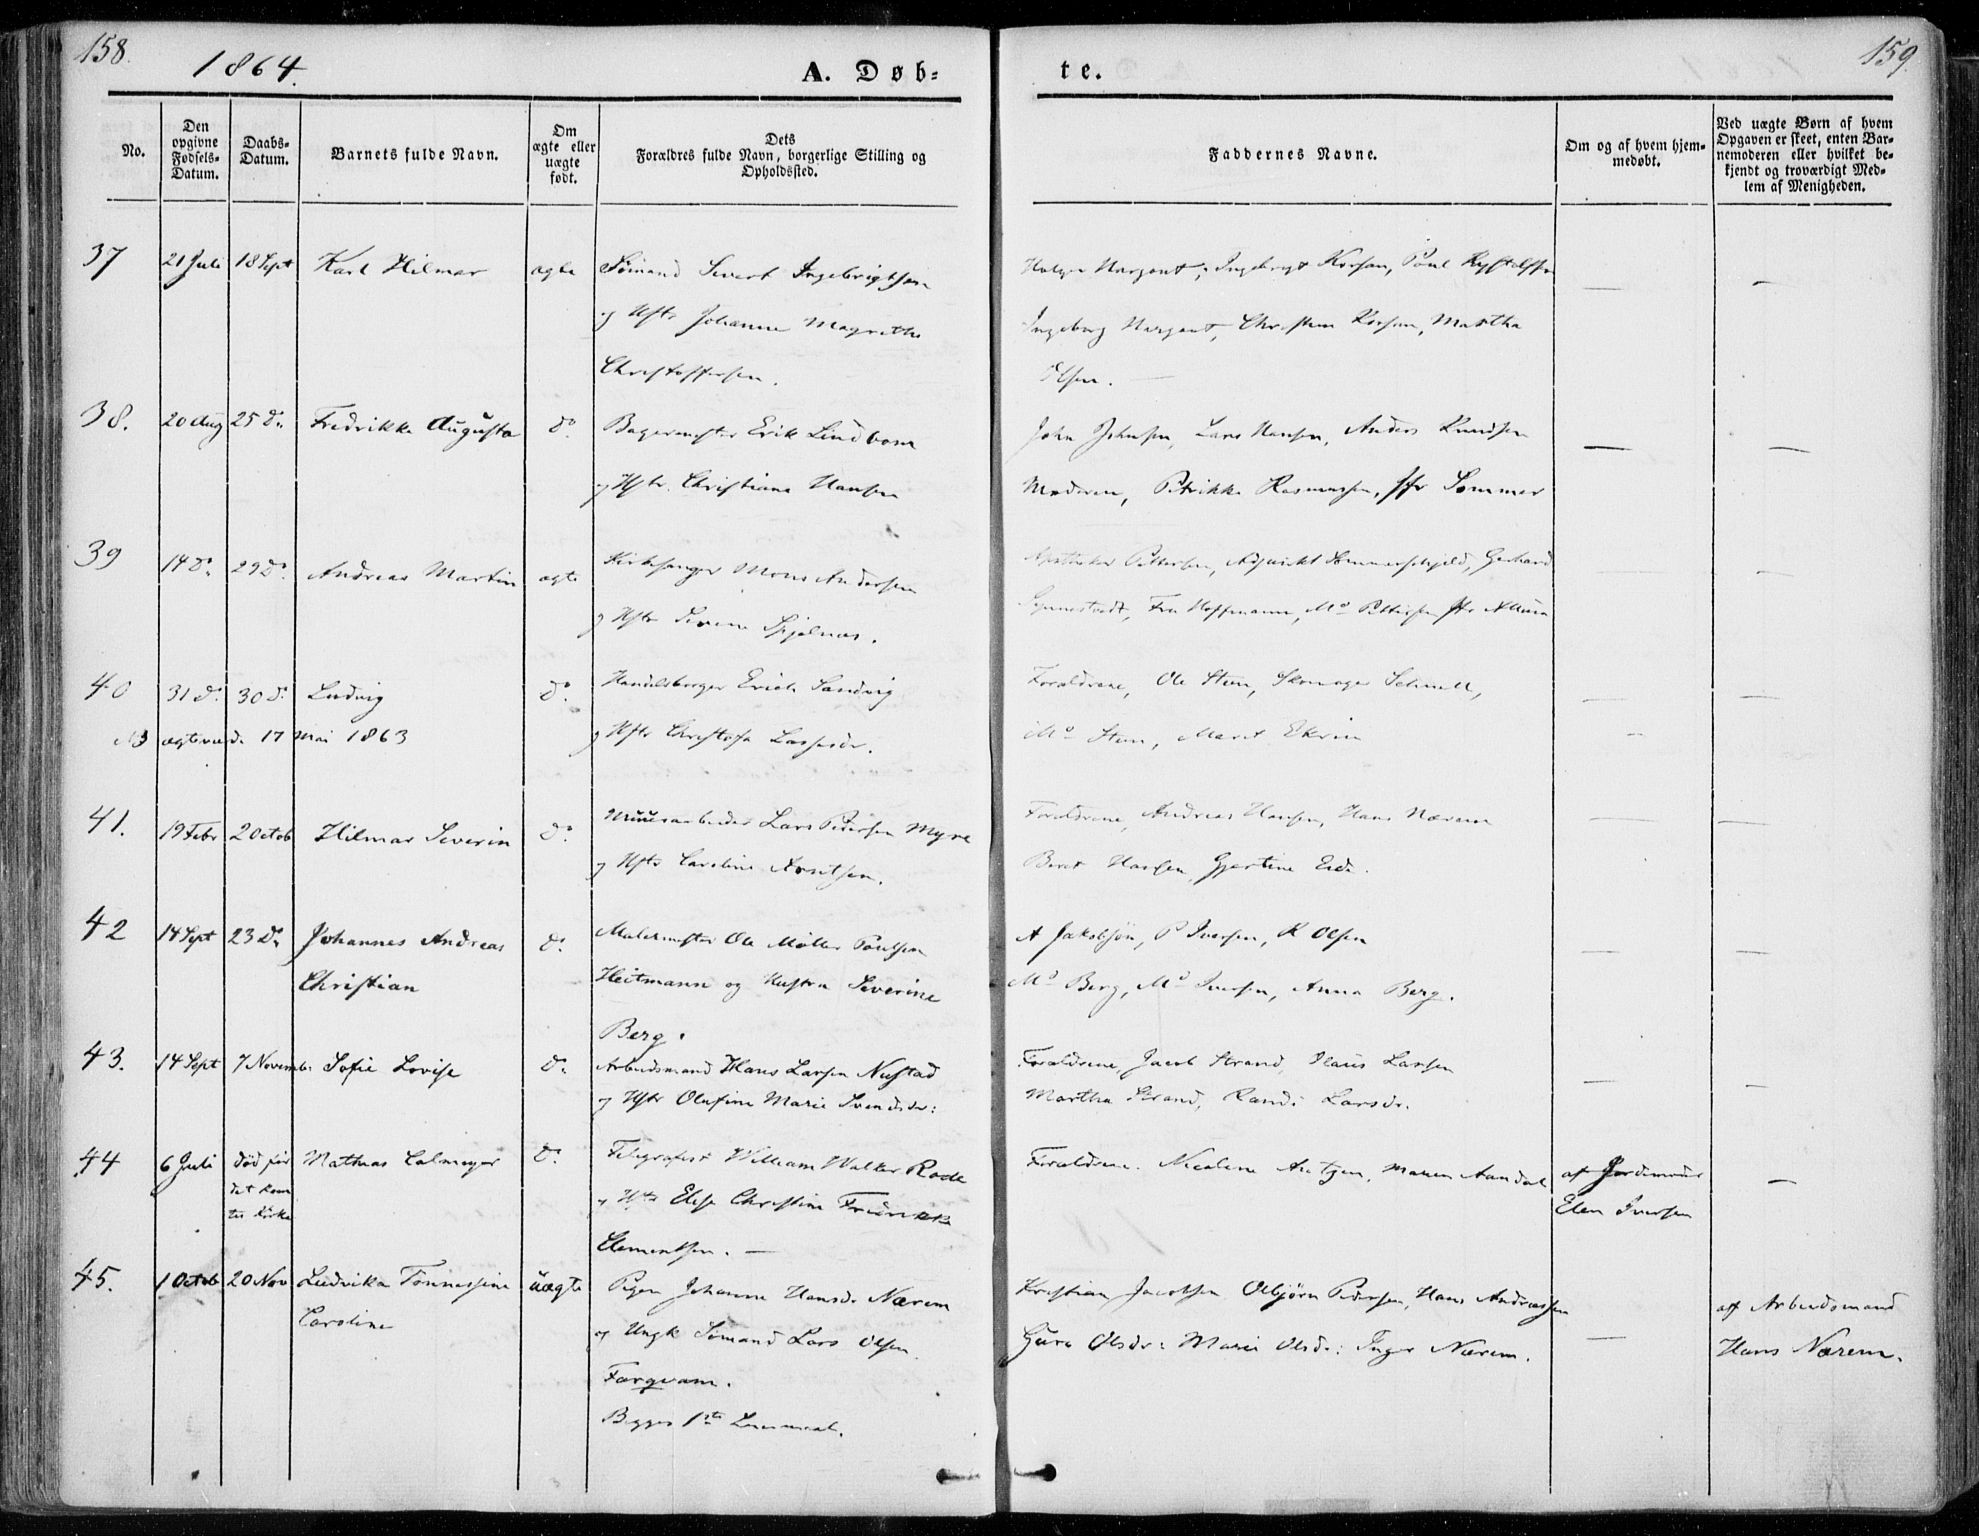 158.
1864.
A. Døb-
te.
159.
No.
Den
opgivne
Fødsels-
Datum.
Daabs-
Datum.
Barnets fulde Navn.
Om
ægte eller
uægte
født.
Dets
Forældres fulde Navn, borgerlige Stilling og
Opholdssted.
Faddernes Navne.
Om og af hvem hjem-
medøbt.
Ved uægte Børn af hvem
Opgaven er skeet, enten Bar-
nemoderen eller hvilket be-
kjendt og troværdigt Med-
lem af Menigheden.
37 21 Juli 18 Sept Karl Hilmar ægte Sømand Sivert Ingebrigtsen
og Hstr Johanne Magrethe
Christoffersen.
Ingeborg Christian Martha
Olsen. —
38. 20 Aug 25 do Fredrikke Augusta do Bagermester Erik Lindbom
og Hstr. Christiane Hansen
John Johnsen, Lars Hansen, Anders Knudsen
Moderen, Petrikke Rasmussen, Jfr Sommer
39 14 do 29 do Andreas Martin ægte Kirkesanger Mons Andersen
og Hstr Severine
Apotheker Pettersen, Adjunkt Sommerschjeld, Gerhard
Synnestvedt, Fru Hoffmann, Md Pettersen Jfr
40 31 do 30 do Ludvig do Handelsborger Erich Sandvig
og Hstr
NB ægteviede 17 Mai 1863
Forældrene, Ole Steen, Skomager
Md Steen, Marit
41. 19 Febr 2 Octob Hilmar Severin do Muursarbeider Lars Pedersen Myre
og Hstr Caroline
Forældrene, Andreas Hansen, Hans Nærem
Beret Hansen, Gjertine Eide.
42 14 Sept 23 do Johannes Andreas do Malermester Ole Møller Poulsen
Christian Heitmann og Hustru Severine
Berg.
A Jakobsøn, P Iversen, K Olsen
Md Berg, Md Iversen, Anna Berg.
43. 14 Sept 7 Novemb: Sofie Lovise do Arbeidsmand Hans Larsen Nustad
og Hstr Olufine Marie Svendsdr:
Forældrene, Jacob Strand, Larsen
Martha Strand, Randi Larsdr.
44 6 Juli død før Mathias Calmeyer do Telegrafist William Walter Rode
det kom
til Kirke
og Hstr Elise Christine Fredrikke
Clementsen. —
Forældrene. Nicoline Maren Aandal af Jordemoder
Elen Iversen
45. 1 Octob 20 Nov Ludvika Tønnessine uægte Pigen Johanne Hansdr Nærem
Caroline og Ungk Sømand Lars Olsen
Farqvam.
Begges 1ste Leiermaal.
Kristian Jacobsen Olbjørn Pedersen, Hans Andreassen
Guro Olsdr: Marie Olsdr: Inger Nærem.
af Arbeidsmand
Hans Nærem.